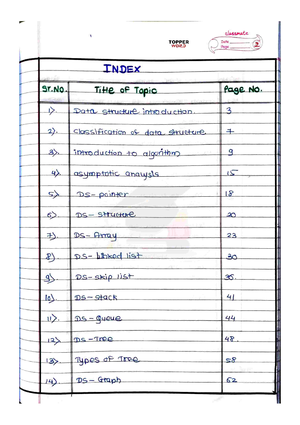 TOPPER
WORLD
classmate
Date
Page 2
INDEX
Sr.No. Title of Topic Page No.
1). Data structure introduction. 3
2). classification of data structure 7
3). introduction to algorithm 9
4). asymptotic analysis 15
5). DS- pointer 18
6). DS- structure 20
7). DS- Array 23
8). DS- Linked list 30
9). DS- skip list 35.
10). DS- stack 41
11). DS- queue 44
12). DS- Tree 48.
13). Types of Tree 58
14). DS- Graph 62